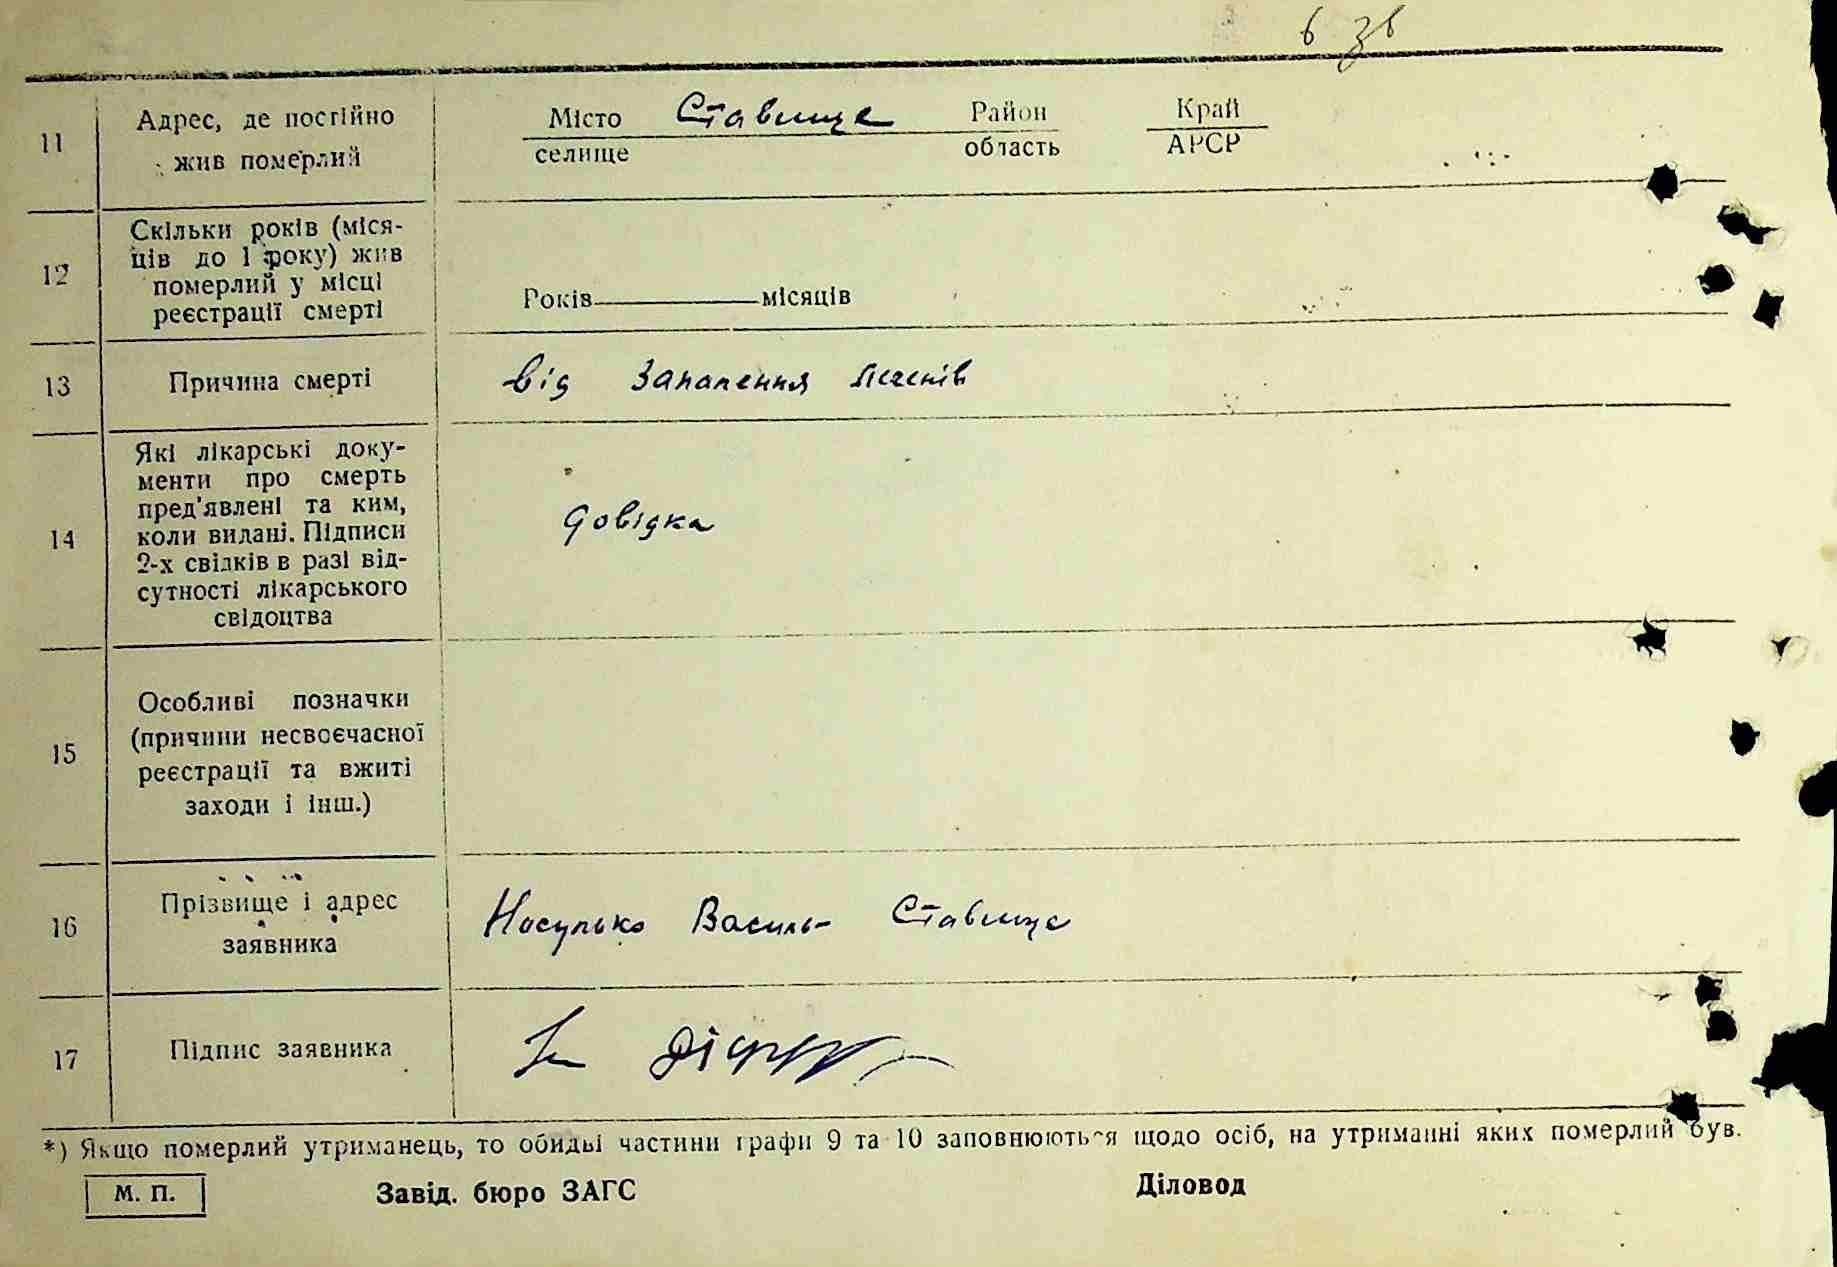 6 зв
11
Адрес, де постійно
жив померлий
Місто Ставище Район Край
селище область АРСР
12
Скільки років (міся-
ців до 1 року) жив
померлий у місці
реєстрації смерті
Років місяців
13
Причина смерті
від запалення легенів
14
Які лікарські доку-
менти про смерть
пред'явлені та ким,
коли видані. Підписи
2-х свідків в разі від-
сутності лікарського
свідоцтва
довідка
15
Особливі позначки
(причини несвоєчасної
реєстрації та вжиті
заходи і інш.)
16
Прізвище і адрес
заявника
Носулько Василь Ставище
17
Підпис заявника
*) Якщо померлий утриманець, то обидві частини графи 9 та 10 заповнюються щодо осіб, на утриманні яких померлий був.
М. П. Завід. бюро ЗАГС Діловод